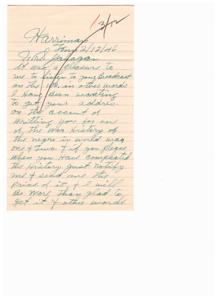 13/12
Harriman
Tenn 2/12/46
Miss
It was a pleasure to
me to listen to your Broadcast
on the 10th. in other words
I have been wanting
to get your address
on the account of
writting you for one
of The War History of
the negro in world war
one & two & if you Please
when you have completed
the History just notify
me & send me the
Price of it & I will
be more than glad to
get it & other words